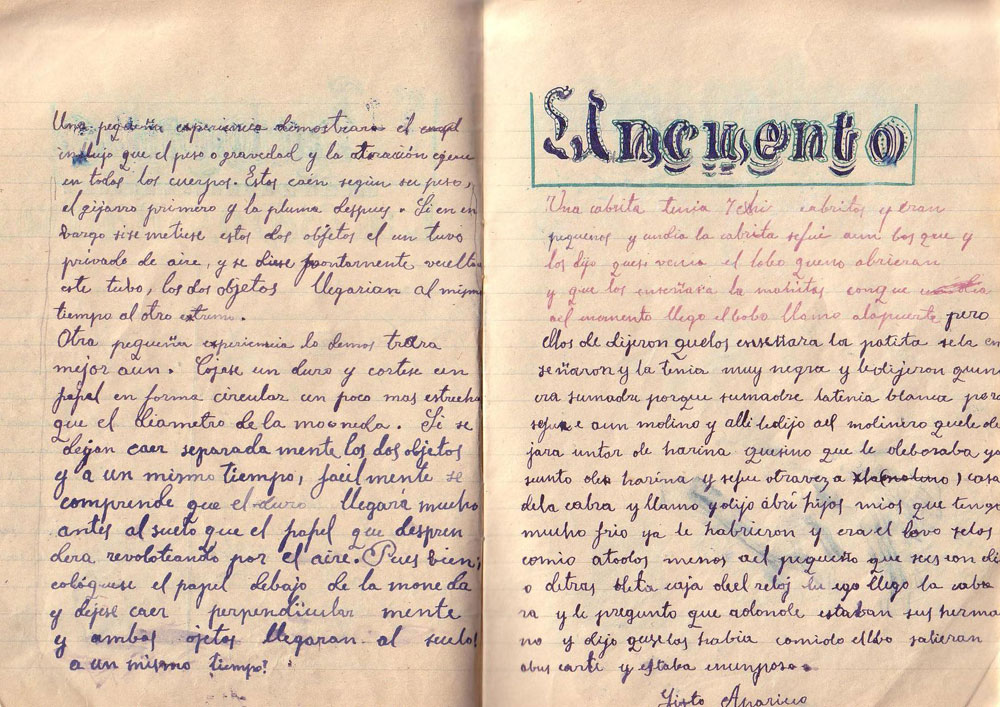 Una pequeña experiencia demostrara el
influjo que el peso o gravedad y la atoración ejerce
en todos los cuerpos. Estos caen según su peso,
el gijarro primero y la pluma despues. Si en en
bargo sise metiese estos dos objetos el un tuvo
privado de aire, y se diese prontamente vuelta
este tubo, los dos objetos llegarian al mism
tiempo al otro extremo.
Otra pequeña experiencia lo demos trara
mejor aun. Cójase un duro y cortese un
papel en forma circular un poco mas estrecho
que el diametro de la mooneda. Si se
dejan caer separada mente los dos objetos
y a un mismo tiempo, facilmente se
comprende que el duro llegará mucho
antes al suelo que el papel que despren
dera revoloteando por el aire. Pues bien;
colóquese el papel debajo de la moneda
y déjese caer perpendicular mente
y ambos ojetos llegaran al suelos
a un mismo tiempo!
Un cuento
Una cabrita tenia 7 cabritos y eran
pequeños y undia la cabrita sefué aun bos que y
los dijo quesi venia el lobo queno abrieran
y que los enseñara la mañitas conque
ael momento llego elbobo llamo alapuerta pero
ellos de dijeron quelos enseñara la patita sela en
señaron y la tenia muy negra y ledijeron queno
era sumadre porque sumadre latenia blanca pero
sefue aun molino y alli ledijo ael molinero quele de
jara untar de harina quesino que le deboraba ya
sunto dela harina y sefue otraveza casa
dela cabra y llamo ydijo ábri hijos mios que tengo
mucho frio ya le habrieron y era el lovo selos
comio atodos menos ael pequeño que sees con di
o detras deta caja del reloj lu ego llego la cabra
ra y le pregunto que adonde estaban sus herma
no y dijo queselos habia comido elbo salieran
abus carli y estaba
Sixto Aparicio